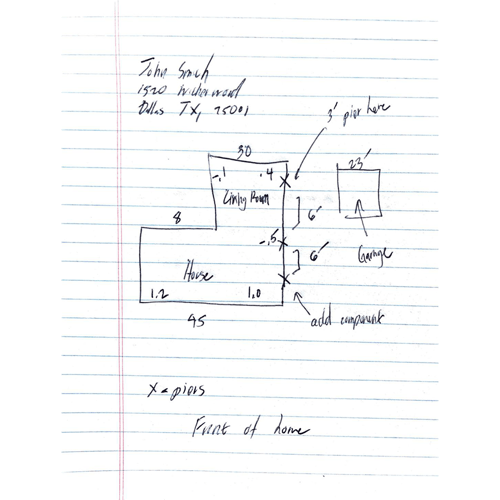 John Smith
1520
Dallas TX, 75001
3' pier here
30
23'
-.1 .4
Living Room
6'
8
-.5
6'
Garage
House
1.2 1.0
add component
45
X = piers
Front of home